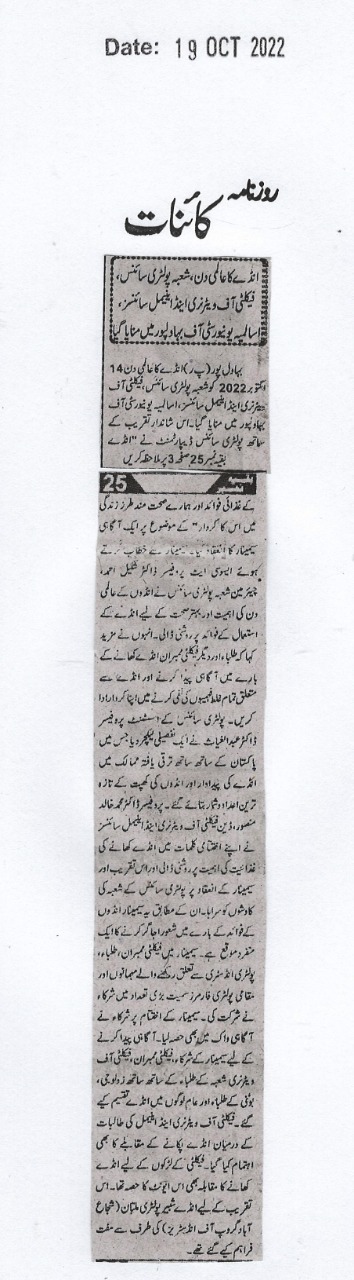 Date: 19 OCT 2022
روزنامہ
کائنات
انڈے کا عالمی دن، شعبہ پولٹری سائنس،
فیکلٹی آف ویٹرنری اینڈ اینیمل سائنسز،
اسلامیہ یونیورسٹی آف بہاولپور میں منایا گیا
بہاول پور (پ ر) انڈے کا عالمی دن 14
اکتوبر 2022 کو شعبہ پولٹری سائنس، فیکلٹی آف
ویٹرنری اینڈ اینیمل سائنسز، اسلامیہ یونیورسٹی آف
بہاولپور میں منایا گیا۔ اس شاندار تقریب کے
ساتھ پولٹری سائنس ڈیپارٹمنٹ نے "انڈے
بقیہ نمبر 25 صفحہ 3 پر ملاحظہ کریں
25 بقیہ نمبر
کے غذائی فوائد اور ہمارے صحت مند طرز زندگی
میں اس کا کردار" کے موضوع پر ایک آگاہی
سیمینار کا انعقاد کیا۔ سیمینار سے خطاب کرتے
ہوئے ایسوسی ایٹ پروفیسر ڈاکٹر شکیل احمد،
چیئرمین شعبہ پولٹری سائنس نے انڈوں کے عالمی
دن کی اہمیت اور بہتر صحت کے لیے انڈے کے
استعمال کے فوائد پر روشنی ڈالی۔ انہوں نے مزید
کہا کہ طلباء اور دیگر فیکلٹی ممبران انڈے کھانے کے
بارے میں آگاہی پیدا کرنے اور انڈے سے
متعلق تمام غلط فہمیوں کی نفی کرنے میں اپنا کردار ادا
کریں۔ پولٹری سائنس کے اسسٹنٹ پروفیسر
ڈاکٹر عبدالغیاث نے ایک تفصیلی لیکچر دیا جس میں
پاکستان کے ساتھ ساتھ ترقی یافتہ ممالک میں
انڈے کی پیداوار اور انڈوں کی کھپت کے تازہ
ترین اعداد و شمار بتائے گئے۔ پروفیسر ڈاکٹر محمد خالد
منصور، ڈین فیکلٹی آف ویٹرنری اینڈ اینیمل سائنسز
نے اپنے اختتامی کلمات میں انڈے کھانے کی
غذائیت کی اہمیت پر روشنی ڈالی اور اس تقریب اور
سیمینار کے انعقاد پر پولٹری سائنس کے شعبہ کی
کاوشوں کو سراہا۔ ان کے مطابق یہ سیمینار انڈوں
کے فوائد کے بارے میں شعور اجاگر کرنے کا ایک
منفرد موقع ہے۔ سیمینار میں فیکلٹی ممبران، طلباء،
پولٹری انڈسٹری سے تعلق رکھنے والے مہمانوں اور
مقامی پولٹری فارمرز سمیت بڑی تعداد میں شرکاء
نے شرکت کی۔ سیمینار کے اختتام پر شرکاء نے
آگاہی واک میں بھی حصہ لیا۔ آگاہی پیدا کرنے
کے لیے سیمینار کے شرکاء، فیکلٹی ممبران، فیکلٹی آف
ویٹرنری شعبہ کے طلباء کے ساتھ ساتھ زولوجی،
بوٹنی کے طلباء اور عام لوگوں میں انڈے تقسیم کیے
گئے۔ فیکلٹی آف ویٹرنری اینڈ اینیمل کی طالبات
کے درمیان انڈے پکانے کے مقابلے کا بھی
اہتمام کیا گیا۔ فیکلٹی کے لڑکوں کے لیے انڈے
کھانے کا مقابلہ بھی اس ایونٹ کا حصہ تھا۔ اس
تقریب کے لیے انڈے شبیر پولٹری ملتان (شجاع
آباد گروپ آف انڈسٹریز) کی طرف سے مفت
فراہم کیے گئے تھے۔